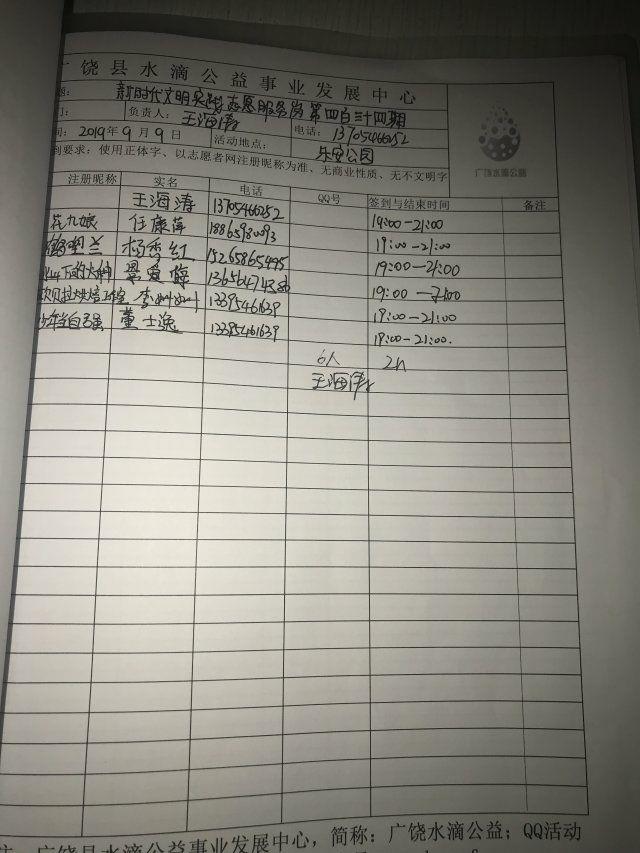 广饶县水滴公益事业发展中心
新时代文明实践志愿服务岗第四百三十四期
负责人：王海涛 电话：13705466252
2019年9月9日 活动地点：乐安公园
到要求：使用正体字、以志愿者网注册昵称为准、无商业性质、无不文明字
广饶水滴公益
注册昵称 实名 电话 QQ号 签到与结束时间 备注
王海涛 13705466252 19:00-21:00
花九娘 任康萍 18865980093 19:00-21:00
兰 杨秀红 15265865495 19:00-21:00
下的大 爱 19:00-21:00
13395461639 19:00-21:00
少年当自强 董士逸 13395461639 19:00-21:00.
6人 2h
王海涛
广饶县水滴公益事业发展中心，简称：广饶水滴公益；QQ活动